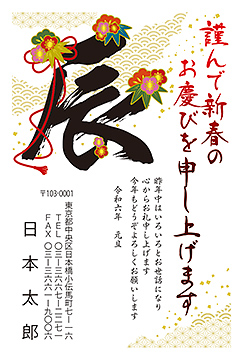 謹んで新春の
お慶びを申し上げます
辰
昨年中はいろいろとお世話になり
心からお礼申し上げます
今年もどうぞよろしくお願いします
令和六年　元旦
〒103-0001
東京都中央区日本橋小伝馬町七ー一六
ＴＥＬ　〇三ー三六六七ー二二七一
ＦＡＸ　〇三ー三六六一ー九〇〇六
日本太郎